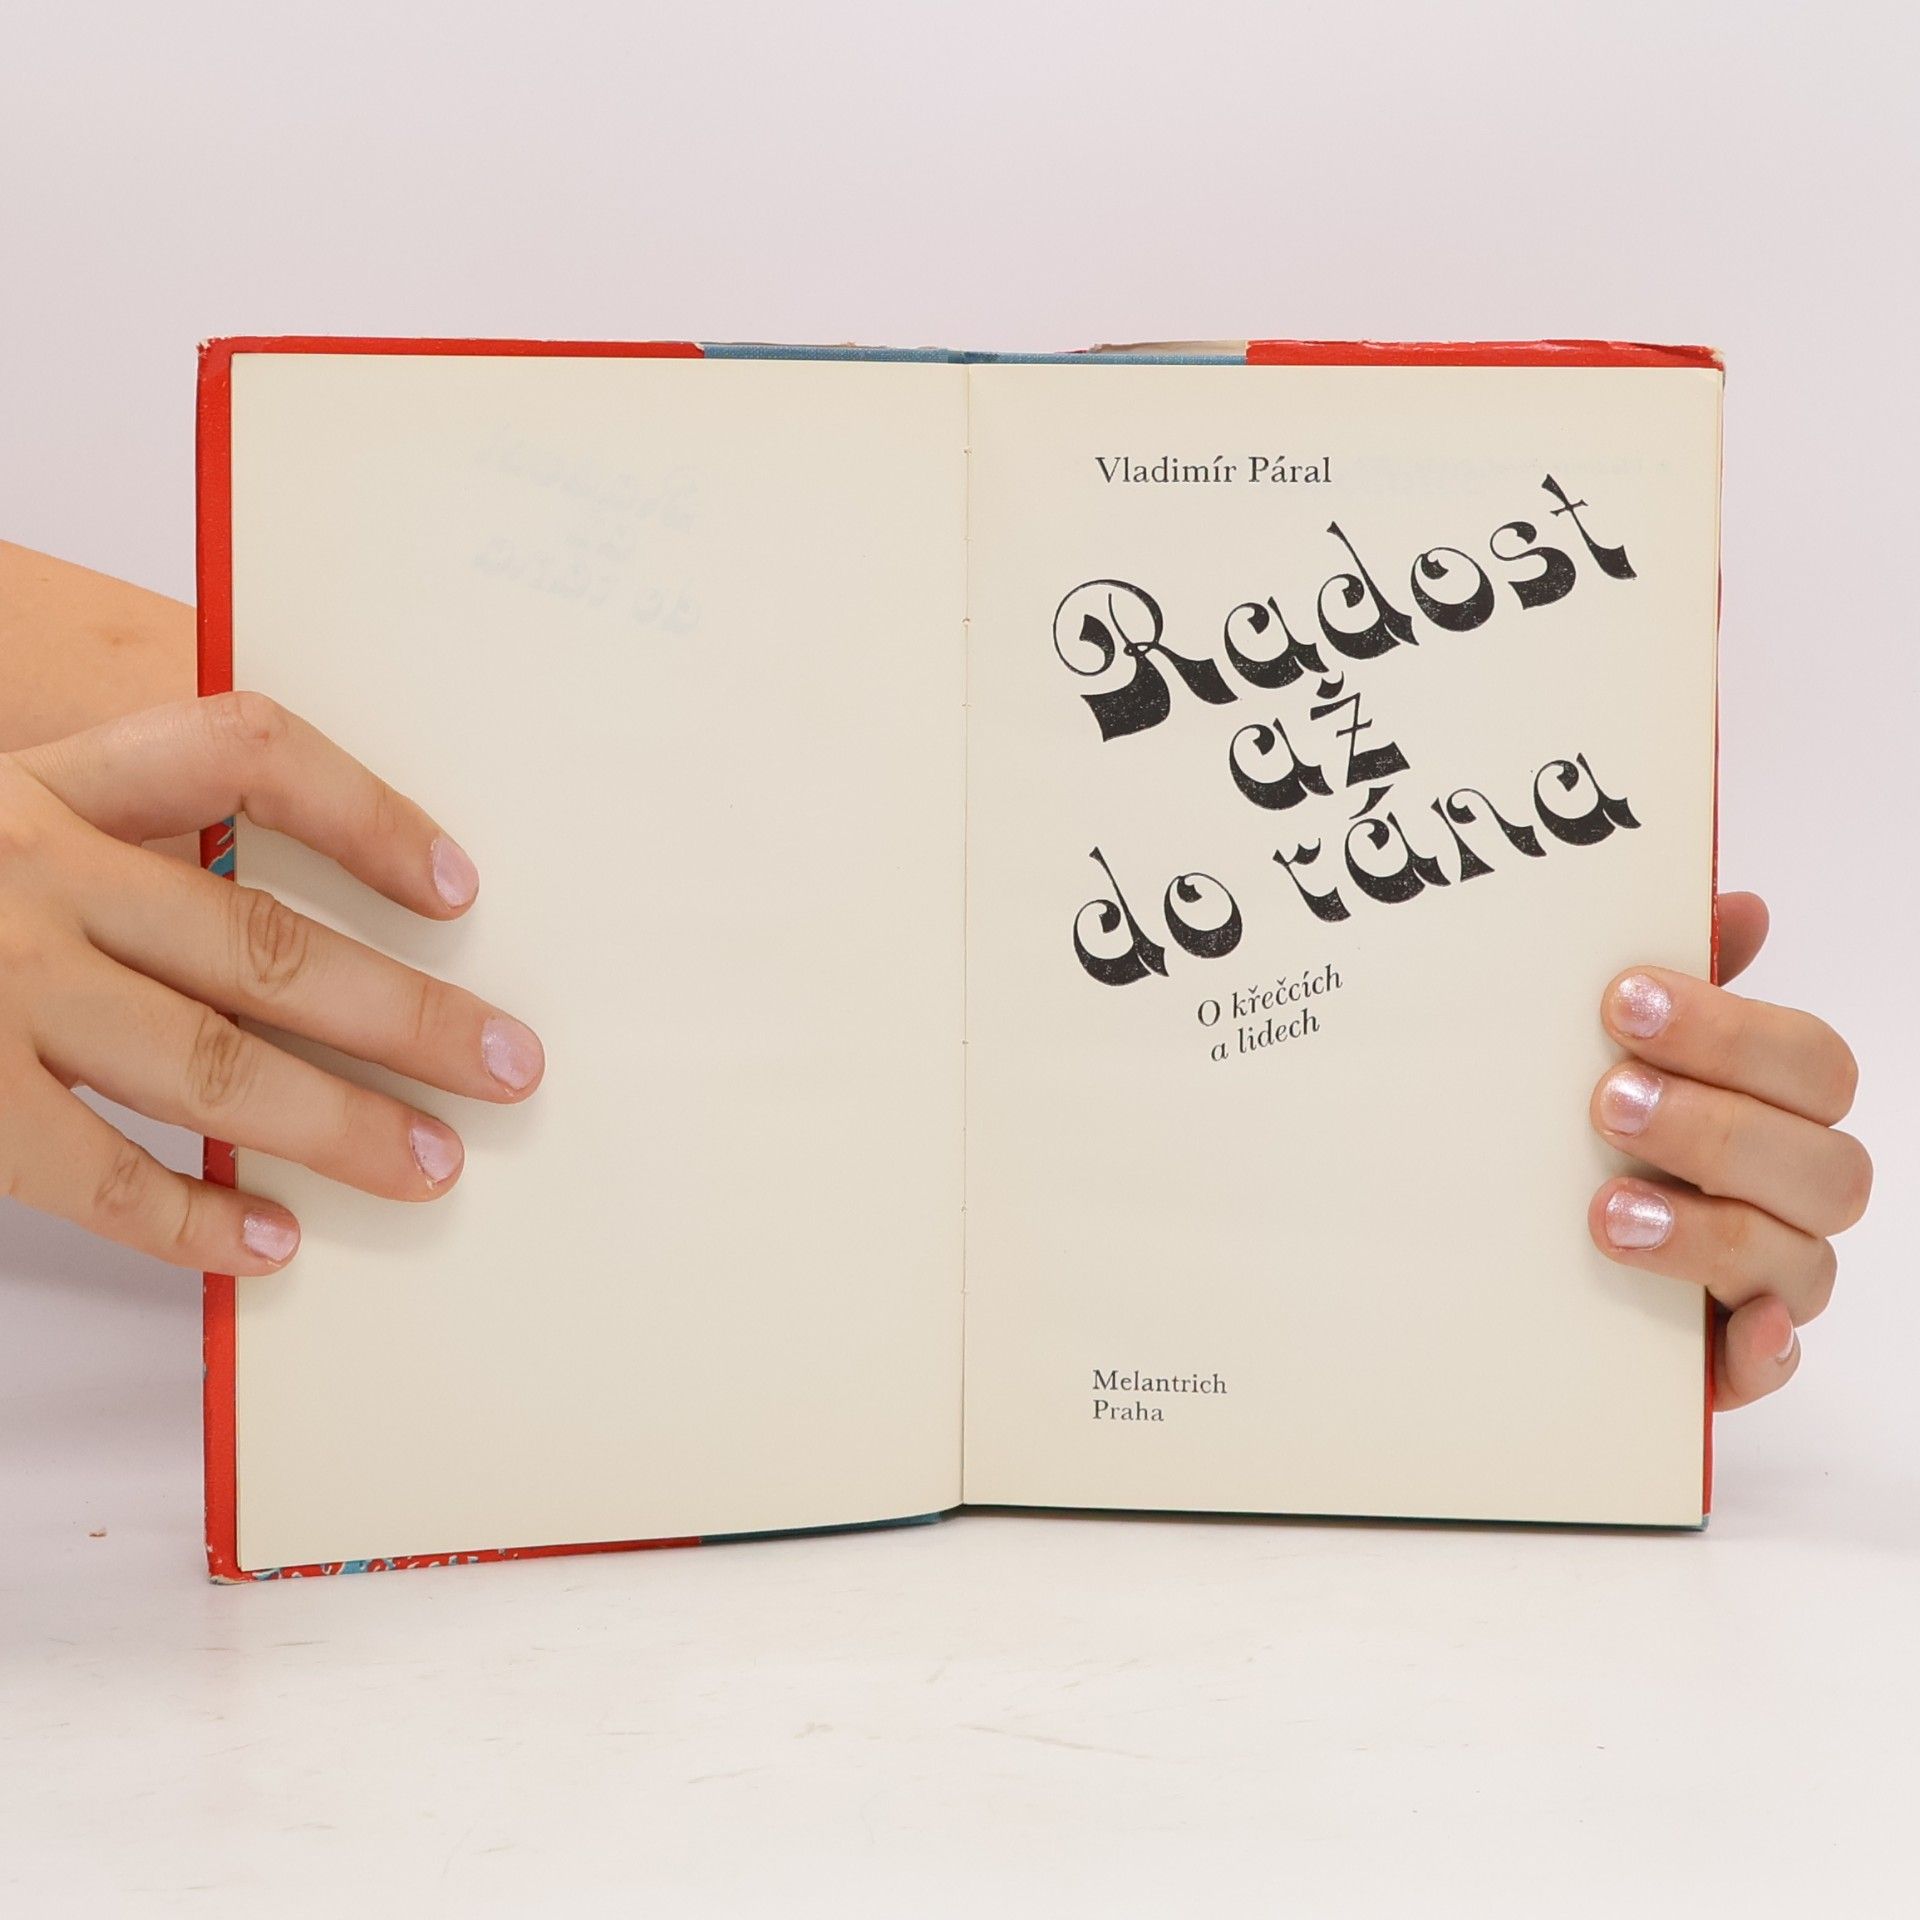 Vladimír Páral
Radost
až
do rána
O křečcích
a lidech
Melantrich
Praha